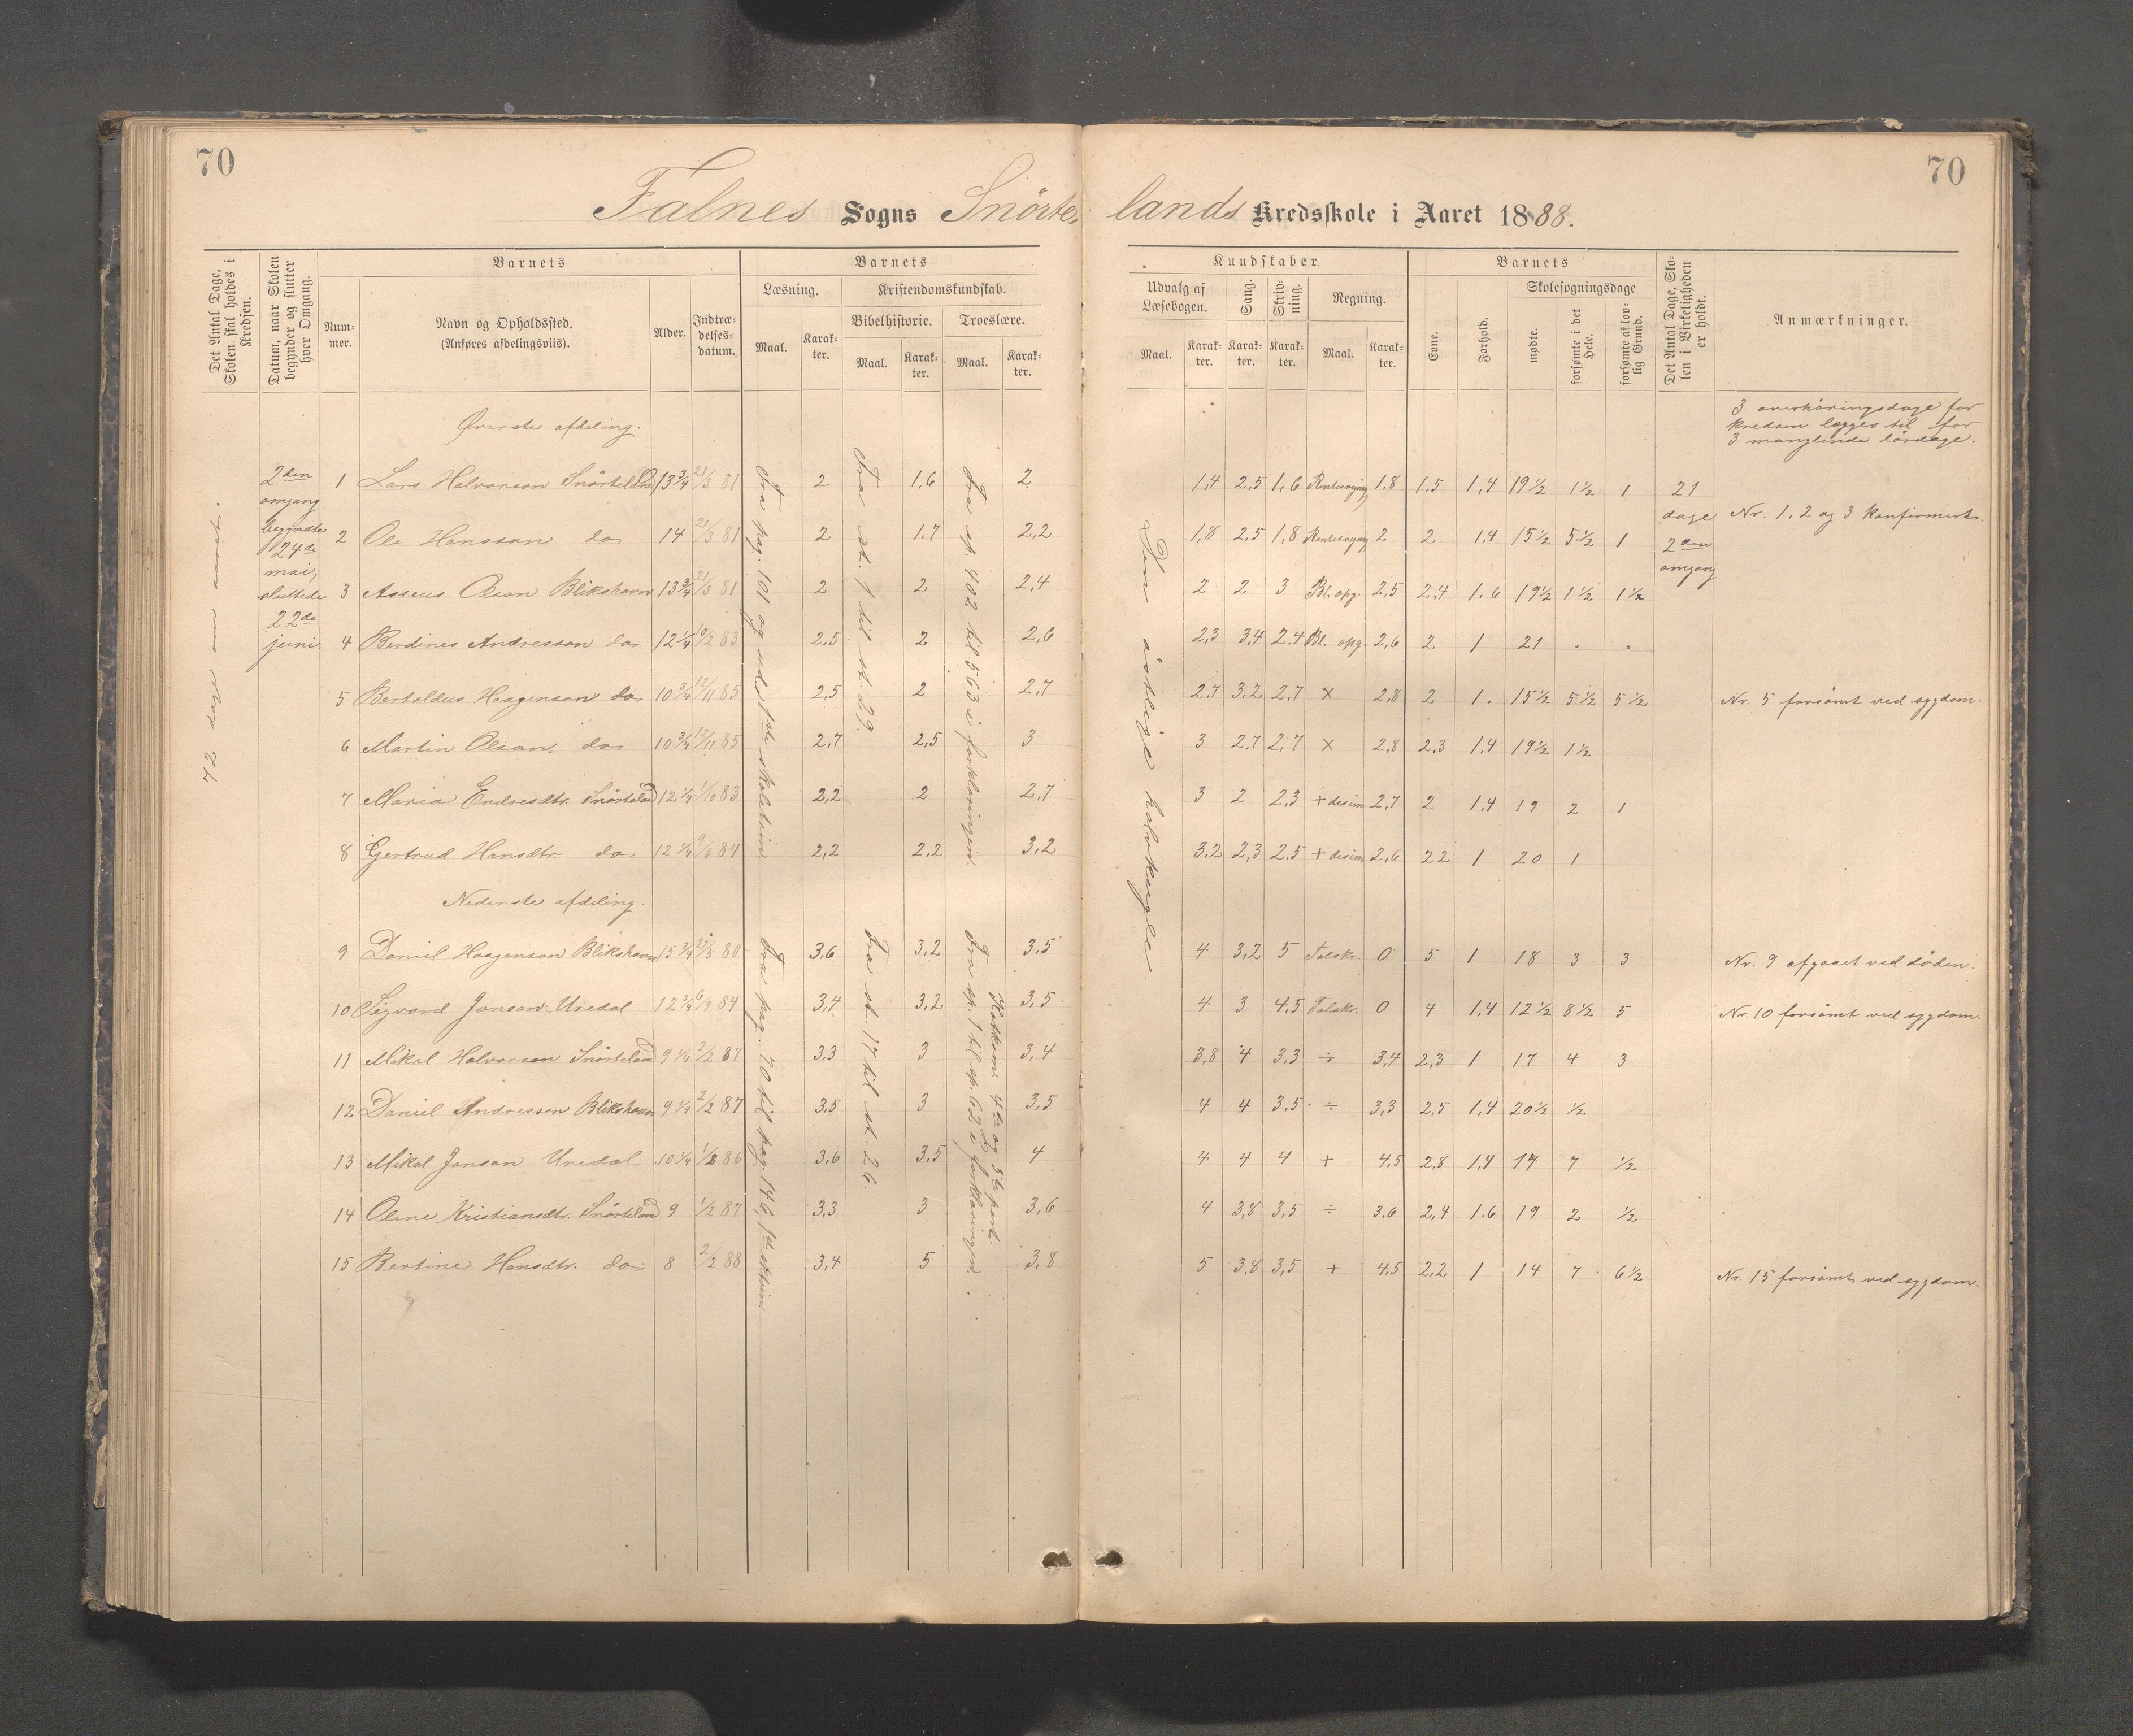 70
70
Falnes Sogns Snörtelands Kredsskole i Aaret 1888.
Det Antal Dage, Skolen skal holdes i Kredsen.
Datum, naar Skolen begynder og slutter hver Omgang.
Barnets
Nummer.
Navn og Opholdssted. (Anføres afdelingsviis).
Alder.
Indtrædelsesdatum.
Barnets
Læsning.
Maal.
Karakter.
Kristendomskundskab.
Bibelhistorie.
Maal.
Karakter.
Troeslære.
Maal.
Karakter.
Kundskaber.
Udvalg af Læsebogen.
Maal.
Karakter.
Sang.
Karakter.
Skrivning.
Karakter.
Regning.
Maal.
Karakter.
Barnets
Evne.
Forhold.
Skolesøgningsdage
mødte.
forsømte i det Hele.
forsømte af lovlig Grund.
Det Antal Dage, Skolen i Virkeligheden er holdt.
Anmærkninger.
72
2den omgang begyndte 24de mai, sluttede 22de juni
Øverste afdeling.
3 overhöringsdage for
kredsen lægges til for
3 manglende lördage.
Fra pag. 101 og ud 1ste skoletrin.
Fra st. 1 til st. 29.
Fra sp. 402 til 563 i forklaringen.
Den östlige halvkugle
21 dage 2den omgang
1 Lars Halvorson Snörteland 13 3/4 21/3 81 2 1,6 2 1,4 2,5 1,6 Rentesregning 1,8 1,5 1,4 19 1/2 1 1/2 1
Nr. 1, 2 og 3 konfirmert.
2 Ole Hansson do 14 21/3 81 2 1,7 2,2 1,8 2,5 1,8 Rentesregning 2 2 1,4 15 1/2 5 1/2 1
3 Asseus Olson Blikshavn 13 3/4 21/3 81 2 2 2,4 2 2 3 Bl. opg. 2,5 2,4 1,6 19 1/2 1 1/2 1 1/2
4 Berdines Andresson do 12 1/4 10/2 83 2,5 2 2,6 2,3 3,4 2,4 Bl. opg. 2,6 2 1 21 . .
5 Bertoldus Haagenson do 10 3/4 12/11 85 2,5 2 2,7 2,7 3,2 2,7 x 2,8 2 1. 15 1/2 5 1/2 5 1/2 Nr. 5 forsömt ved sygdom.
6 Martin Olson do 10 3/4 12/11 85 2,7 2,5 3 3 2,7 2,7 x 2,8 2,3 1,4 19 1/2 1 1/2
7 Maria Endresdtr. Snörteland 12 1/4 1/10 83 2,2 2 2,7 3 2 2,3 + desim 2,7 2 1,4 19 2 1
8 Gertrud Hansdtr. do 12 1/4 9/6 84 2,2 2,2 3,2 3,2 2,3 2,5 + desim 2,6 22 1 20 1
Nederste afdeling.
Fra pag. 70 til pag. 146, 1ste sktrin.
Fra st. 17 til st. 26.
Fra sp. 1 til sp. 62 i forklaringen.
Katekism. 4de og 5te part.
9 Daniel Haagenson Blikshavn 15 3/4 21/5 80 3,6 3,2 3,5 4 3,2 5 Talskr. 0 5 1 18 3 3 Nr. 9 afgaaet ved döden.
10 Sigvard Jonson Uredal 12 3/4 6/9 84 3,4 3,2 3,5 4 3 4,5 Talskr. 0 4 1,4 12 1/2 8 1/2 5 Nr. 10 forsömt ved sygdom.
11 Mikal Halvorson Snörteland 9 1/4 2/2 87 3,3 3 3,4 3,8 4 3,3 ÷ 3,4 2,3 1 17 4 3
12 Daniel Andresson Blikshavn 9 1/4 2/2 87 3,5 3 3,5 4 4 3,5 ÷ 3,3 2,5 1,4 20 1/2 1/2
13 Mikal Jonson Uredal 10 1/4 1/2 86 3,6 3,5 4 4 4 4 + 4,5 2,8 1,4 14 7 1/2
14 Olene Kristiansdtr. Snörteland 9 1/2 87 3,3 3 3,6 4 3,8 3,5 ÷ 3,6 2,4 1,6 19 2 1/2
15 Bertine Hansdtr. do 8 2/2 88 3,4 5 3,8 5 3,8 3,5 + 4,5 2,2 1 14 7 6 1/2 Nr. 15 forsömt ved sygdom.